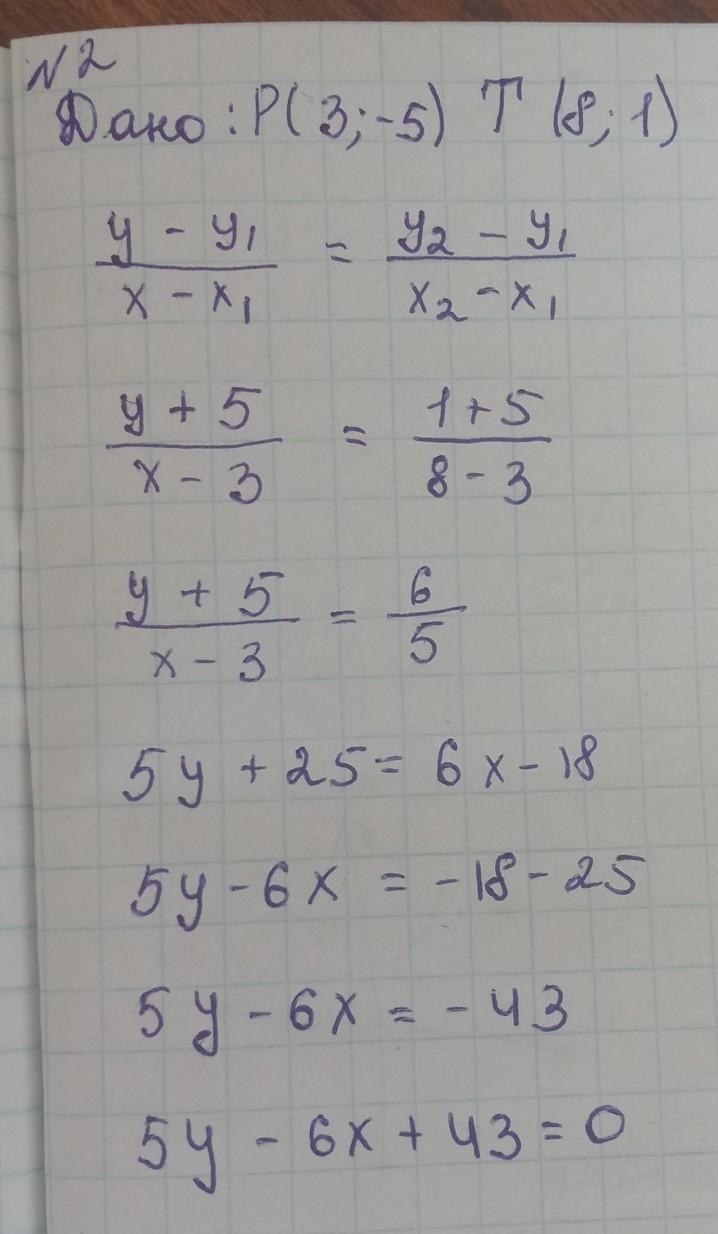 N2
Дано: P(3;-5) T (8; 1)
y - y₁ / x - x₁ = y₂ - y₁ / x₂ - x₁
y + 5 / x - 3 = 1+5 / 8 - 3
y + 5 / x - 3 = 6 / 5
5y + 25 = 6x - 18
5y - 6x = -18 - 25
5y - 6x = -43
5y - 6x + 43 = 0